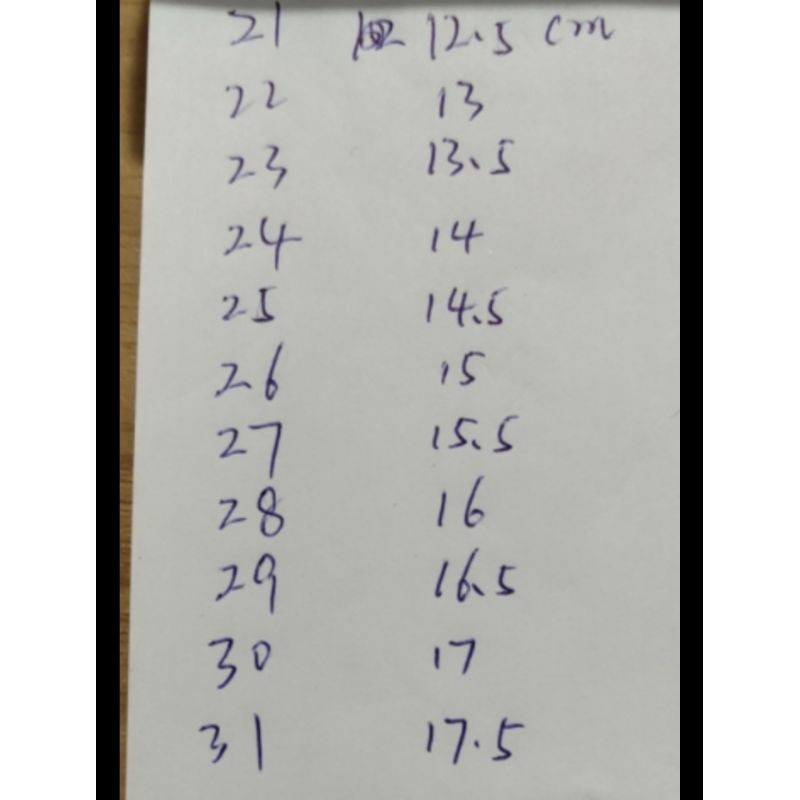 21 12.5 cm
22 13
23 13.5
24 14
25 14.5
26 15
27 15.5
28 16
29 16.5
30 17
31 17.5